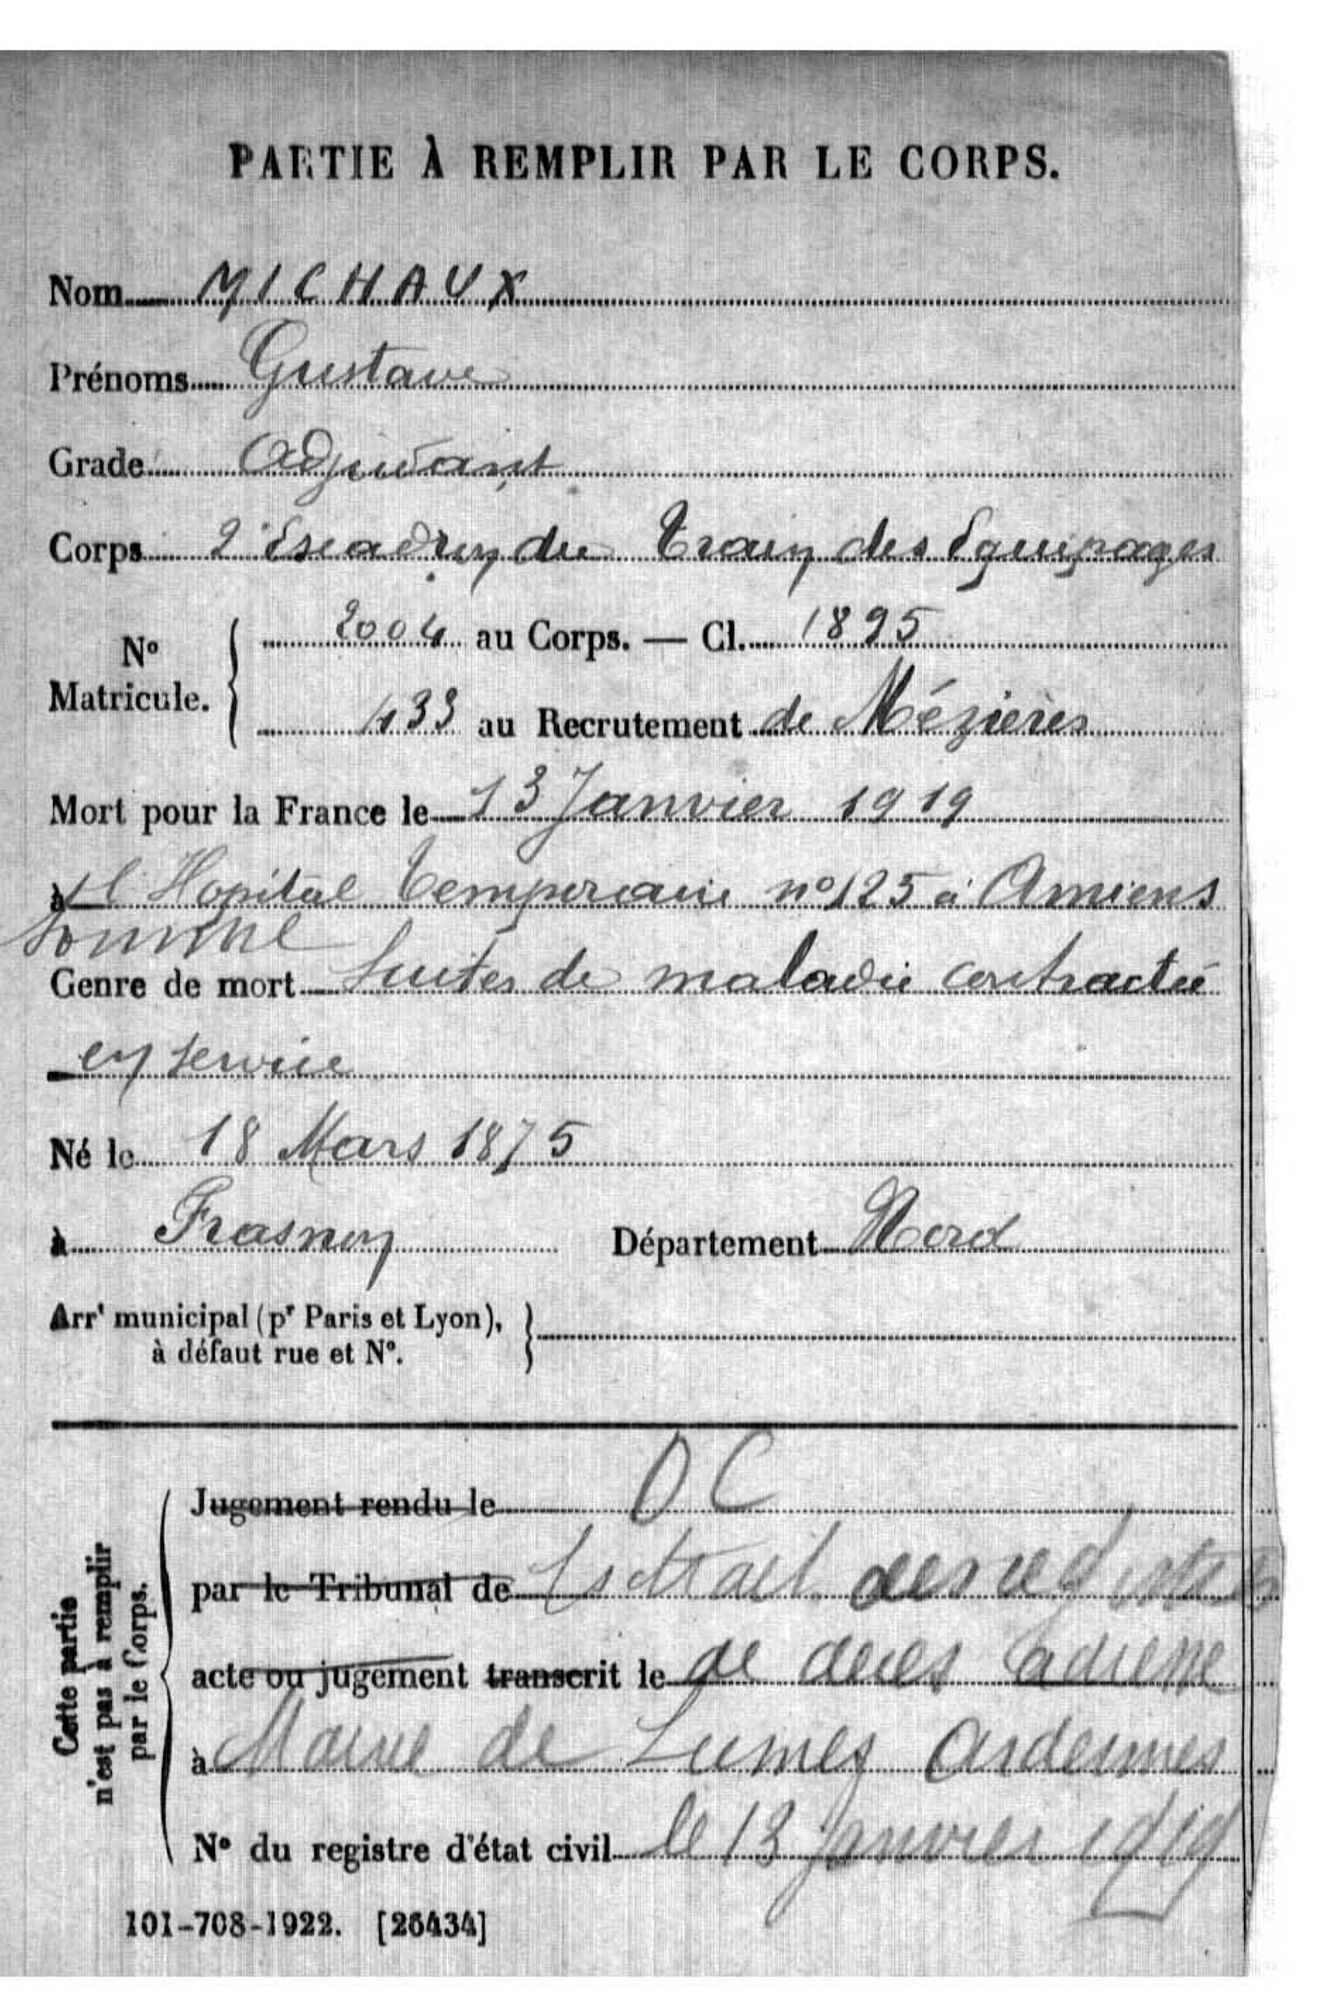 PARTIE À REMPLIR PAR LE CORPS.
Nom MICHAUX
Prénoms Gustave
Grade Adjudant
Corps 2e Escadron du Train des Equipages
No Matricule. 2004 au Corps. — Cl. 1895
433 au Recrutement de Mézières
Mort pour la France le 13 Janvier 1919
à l'Hopital Temporaire no 125 à Amiens
Somme
Genre de mort Suites de maladie contractée
en service
Né le 18 Mars 1875
à Frasnoy Département Nord
Arrt municipal (pr Paris et Lyon),
à défaut rue et No.
Cette partie
n'est pas à remplir
par le Corps.
Jugement rendu le DC
par le Tribunal de Extrait des registres
acte ou jugement transcrit le de deces adresse
à Mairie de Lumes Ardennes
No du registre d'état civil le 13 janvier 1919
101-708-1922. [26434]